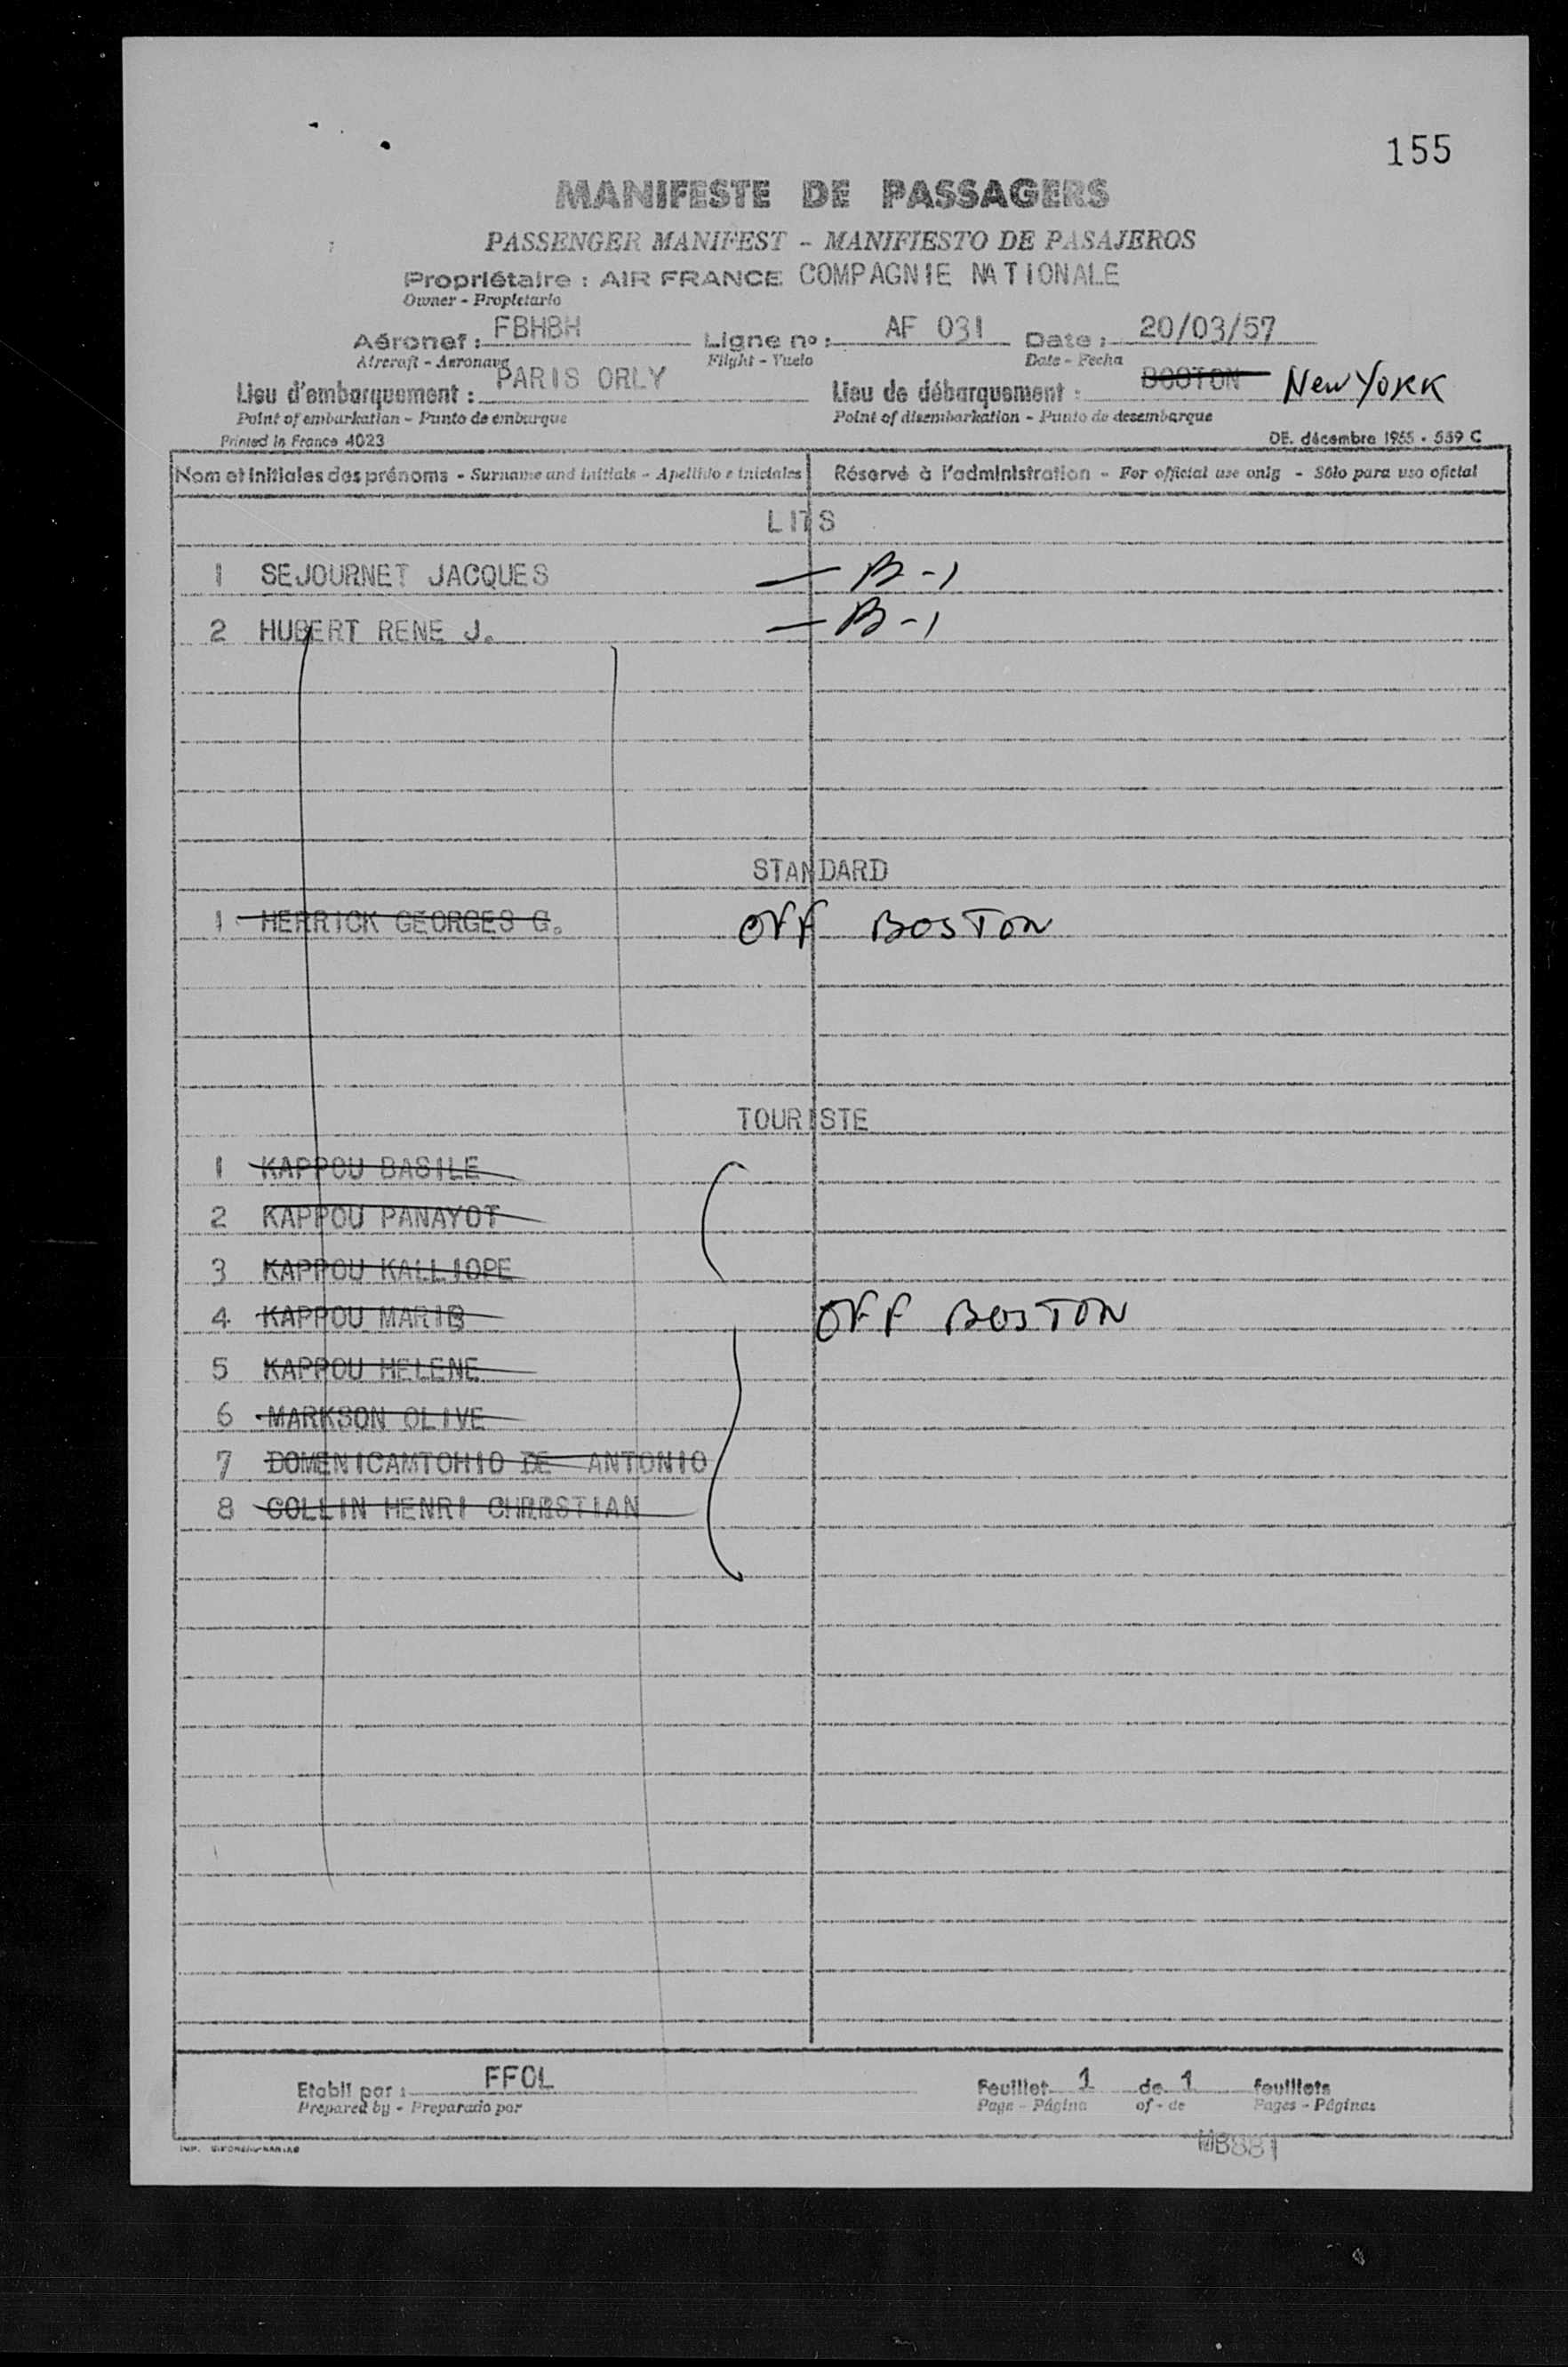 155
MANIFESTE DE PASSAGERS
PASSENGER MANIFEST - MANIFIESTO DE PASAJEROS
Propriétaire : AIR FRANCE COMPAGNIE NATIONALE
Owner - Propietario
Aéronef : FBHBH Ligne nº : AF 031 Date : 20/03/57
Aircraft - Aeronave Flight - Vuelo Date - Fecha
Lieu d'embarquement : PARIS ORLY Lieu de débarquement : BOSTON New YORK
Point of embarkation - Punto de embarque Point of disembarkation - Punto de desembarque
Printed in France 4023 OE. décembre 1955 - 559 C
Nom et initiales des prénoms - Surname and initials - Apellido e iniciales Réservé à l'administration - For official use only - Sólo para uso oficial
LITS
1 SEJOURNET JACQUES — B-1
2 HUBERT RENE J. — B-1
STANDARD
1 HERRICK GEORGES G. OFF BOSTON
TOURISTE
1 KAPPOU BASILE
2 KAPPOU PANAYOT
3 KAPPOU KALLIOPE
4 KAPPOU MARIE OFF BOSTON
5 KAPPOU HELENE
6 MARKSON OLIVE
7 DOMENICAMTOHIO DE ANTONIO
8 COLLIN HENRI CHRISTIAN
Etabli par : FFOL Feuillet 1 de 1 feuillets
Prepared by - Preparado por Page - Página of - de Pages - Páginas
IMP.
MB881